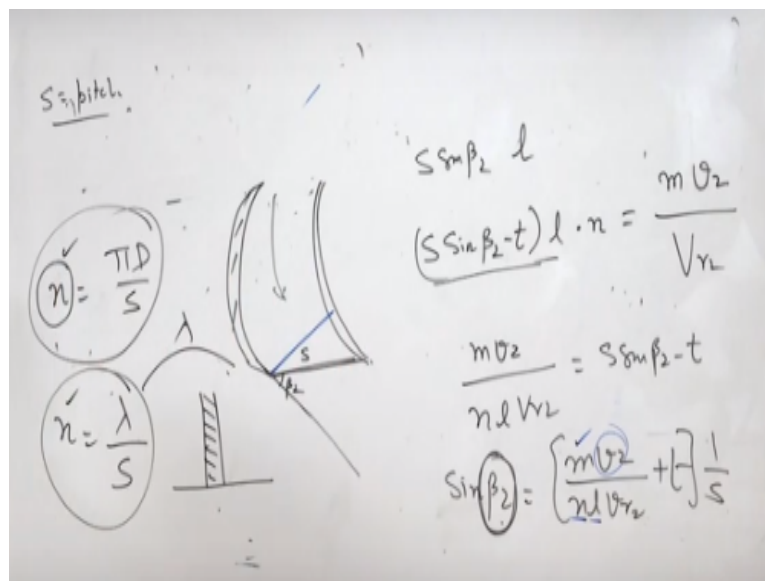 S = pitch.
n = πD/S
λ
n = λ/S
S
β₂
S sin β₂ l
(S sin β₂ - t) l · n = m v₂ / Vr₂
m v₂ / n l Vr₂ = S sin β₂ - t
Sin β₂ = [m v₂ / n l Vr₂ + t] 1/S